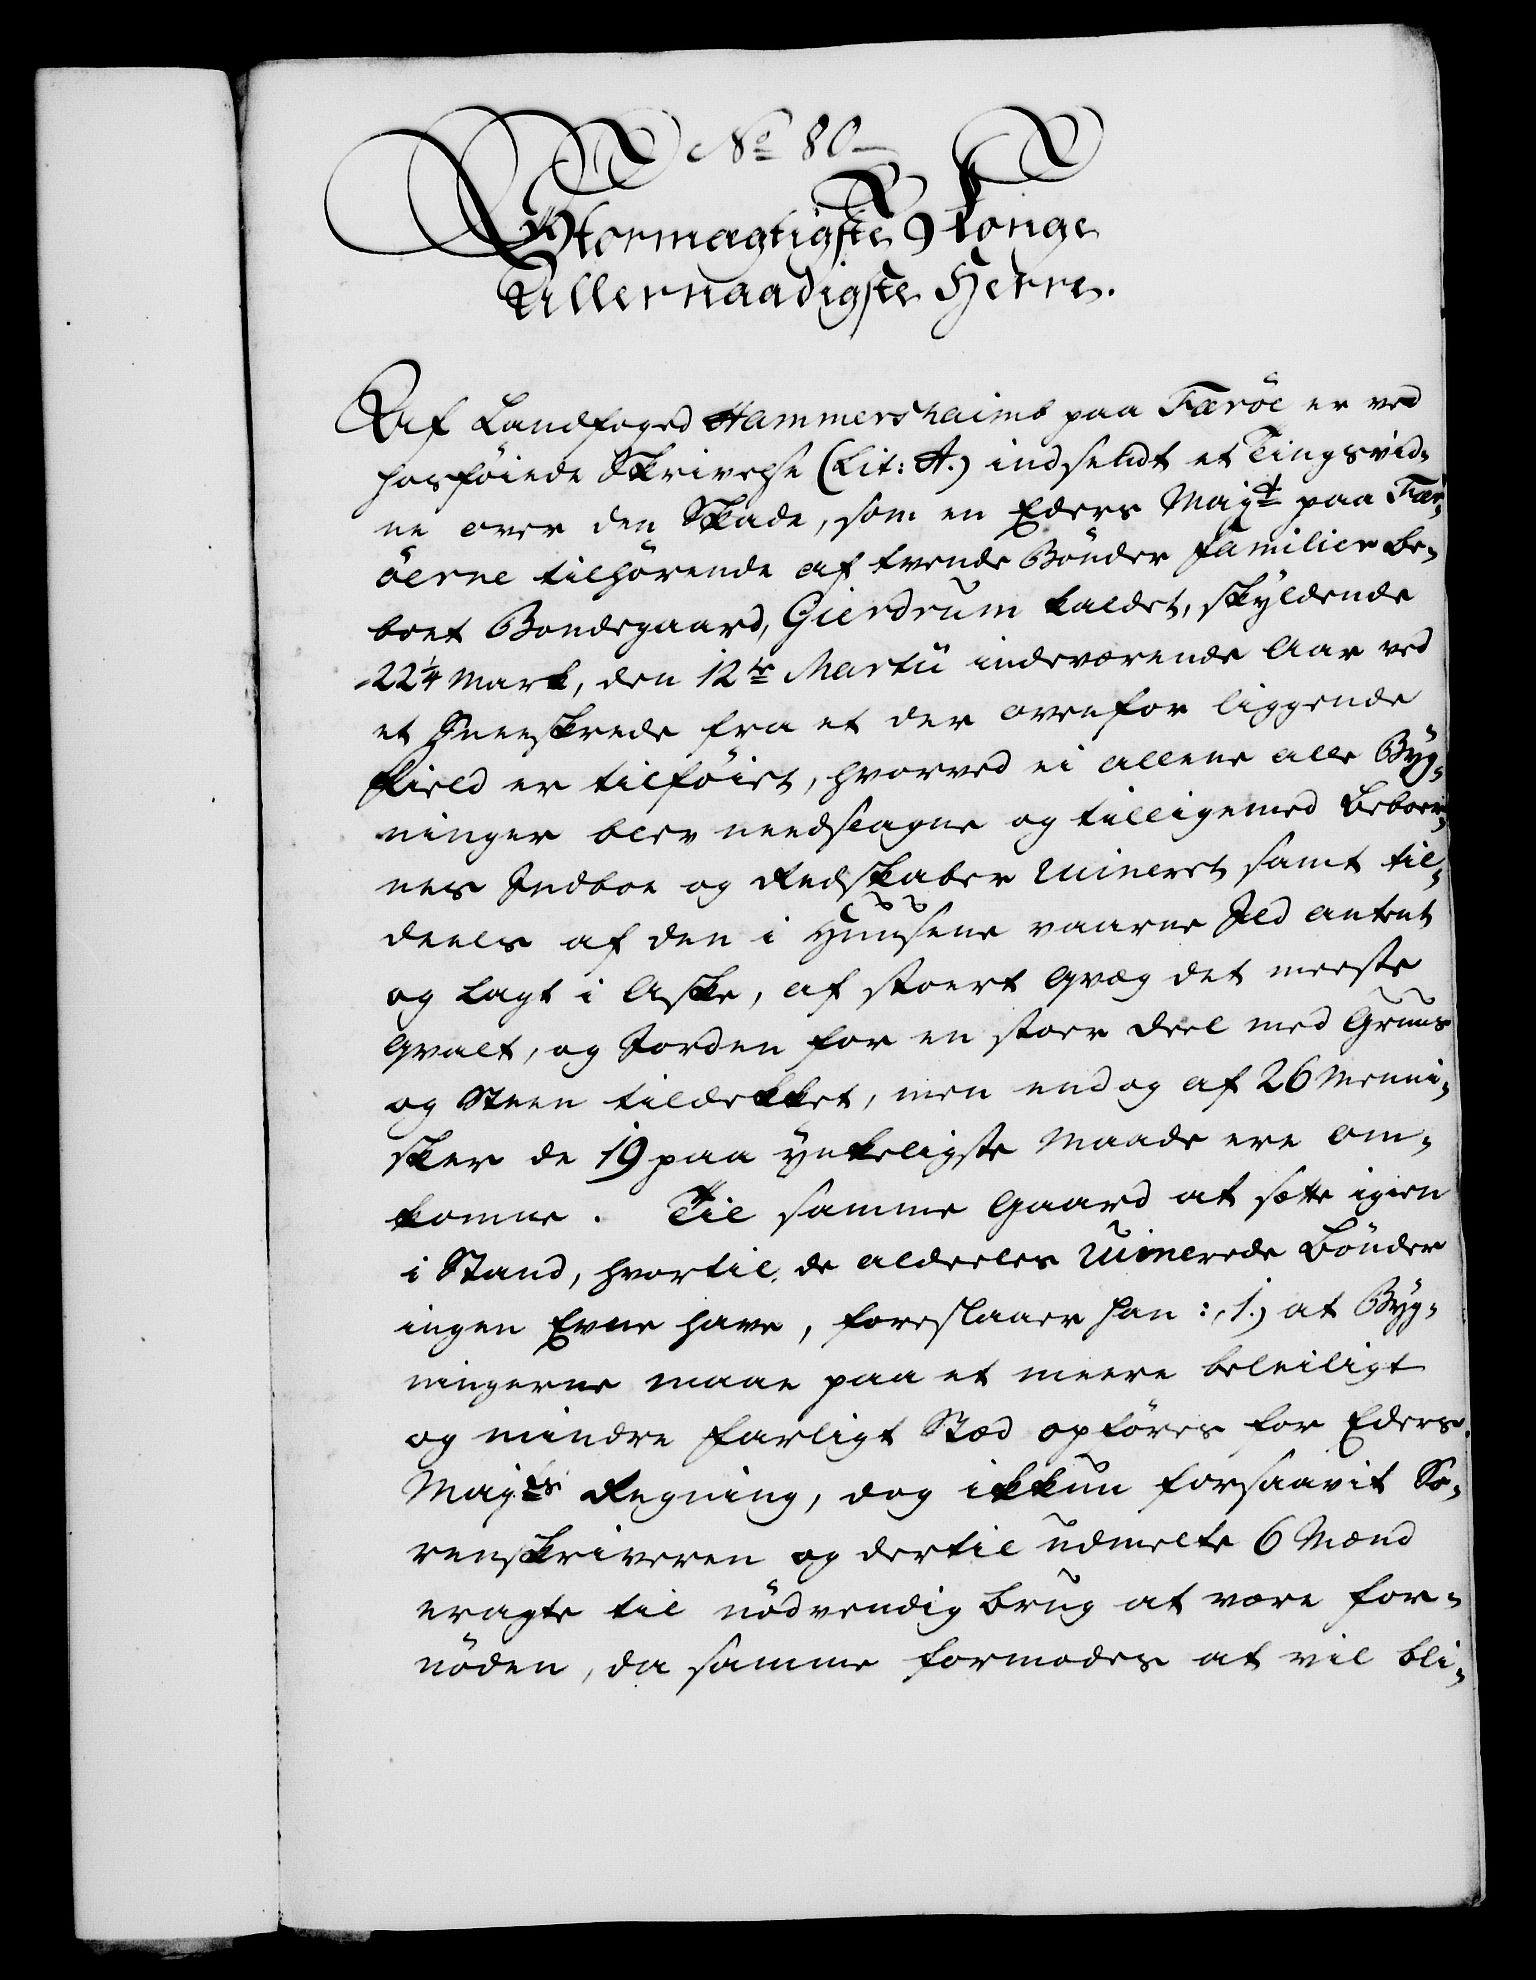 No 80
Stormægtigste Konge
Allernaadigste Herre.
Af Landfoged Hammershaimb paa Færöe er ved
hosföiede Skrivelse (Lit: A.) indsendt et Tingsvid-
ne over den Skade, som en Eders Mayt paa Fær-
öerne tilhörende af tvende Bönder Familier be-
boet Bondegaard, Gierdrum kaldet, skyldende
22 1/4 Mark, den 12te Martii indeværende Aar ved
et Sneeskrede fra et der ovenfor liggende
Field er tilföiet, hvorved ei allene alle Byg-
ninger blev needslagne og tilligemed Beboer-
nes Indboe og Redskaber ruineret samt til-
deels af den i Huusene værne Ild antent
og lagt i Aske, af stoert Qvæg det meeste
qvalt, og Jorden for en stoer Deel med Gruus
og Steen tildekket, men endog af 26 Menni-
sker de 19 paa ynkeligste Maade ere om-
komne. Til samme Gaard at sætte igien
i Stand, hvortil de aldeeles ruinerede Bönder
ingen Evne have, foreslaaer han :, 1.) at Byg-
ningerne maae paa et meere beleiligt
og mindre farligt Stæd opföres for Eders
Mayts Regning, dog ikkun forsaavit So-
renskriveren og dertil udmelte 6 Mænd
eragte til nödvendig Brug at være for-
nöden, da samme formodes at vil bli-